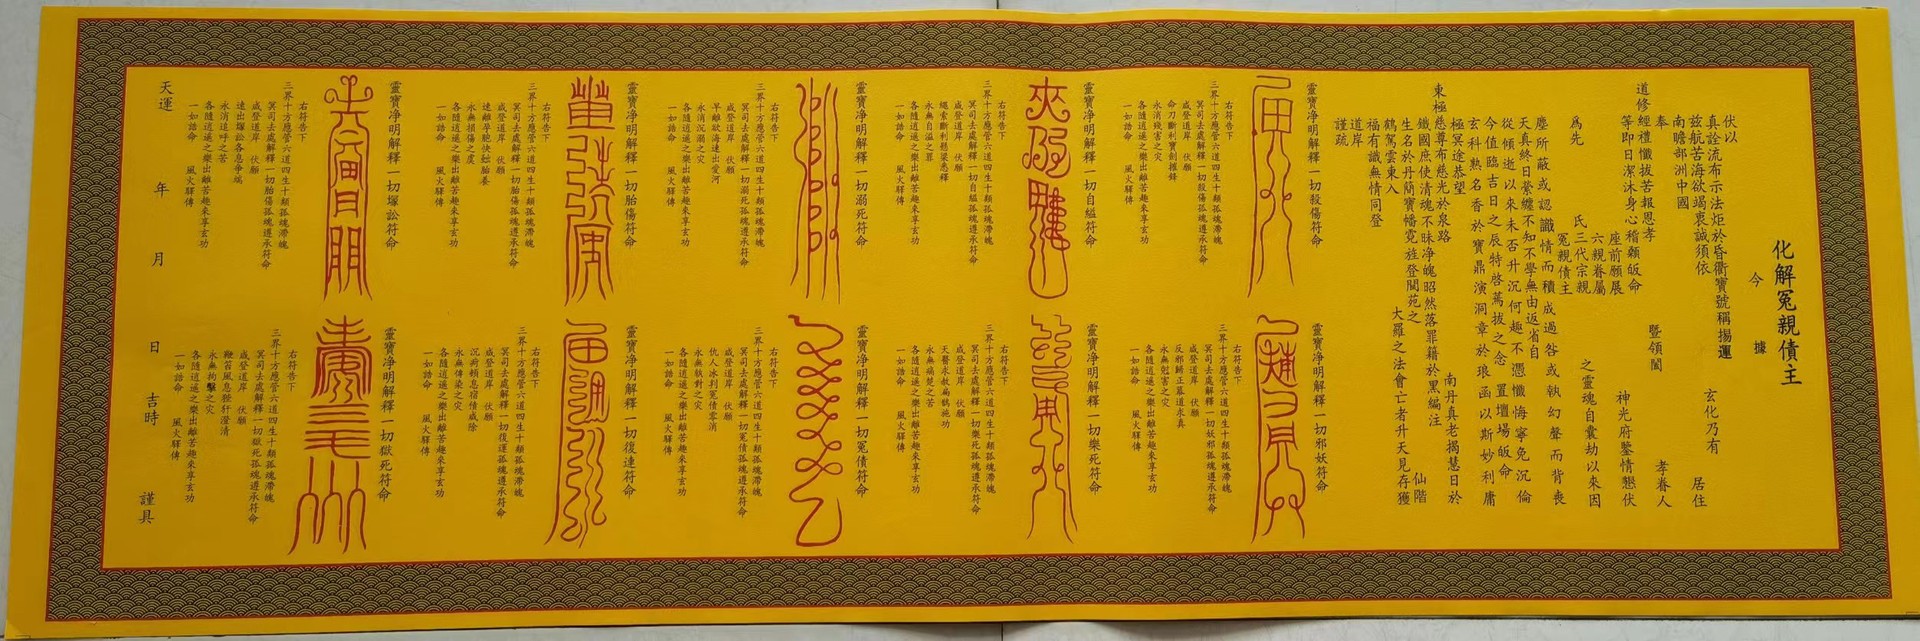 化解冤親債主
今　據
伏以
真詮流布示法炬於昏衢寶號稱揚運　玄化乃有
茲航苦海欲竭衷誠須依　居住
南瞻部洲中國
奉
道修經禮懺拔苦報恩孝　暨領闔　孝眷人
等即日潔沐身心稽顙皈命
座前願展　神光府鑒情懇伏
六親眷屬
為先　氏三代宗親　之靈魂自曩劫以來因
冤親債主
塵所蔽或認識情而積成過咎或執幻聲而背喪
天真終日縈纏不知不學無由返省自
從傾逝以來未否升沉何趣不憑懺悔寧免沉倫
今值臨吉日之辰特啓薦拔之念　置壇場皈命
玄科熱名香於寶鼎演洞章於琅函以斯妙利庸
極冥途恭望
東極慈尊布慈光於泉路　南丹真老揭慧日於
鐵國庶使清魂不昧净魄昭然落罪籍於黑編注
生名於丹簡寶幡霓旌登閬苑之　仙階
鶴駕雲東入　大羅之法會亡者升天見存獲
福有識無情同登
道岸
謹疏
靈寶净明解釋一切殺傷符命
右符告下
三界十方應管六道四生十類孤魂滯魄
冥司去處解釋一切殺傷孤魂遵承符命
咸登道岸　伏願
命刀斷利寶劍摧鋒
永消殘害之灾
各隨逍遥之樂出離苦趣來享玄功
一如誥命　風火驛傳
靈寶净明解釋一切邪妖符命
右符告下
三界十方應管六道四生十類孤魂滯魄
冥司去處解釋一切妖邪孤魂遵承符命
咸登道岸　伏願
反邪歸正慕道求真
永無尅害之灾
各隨逍遥之樂出離苦趣來享玄功
一如誥命　風火驛傳
靈寶净明解釋一切自縊符命
右符告下
三界十方應管六道四生十類孤魂滯魄
冥司去處解釋一切自縊孤魂遵承符命
咸登道岸　伏願
繩索斷利懸梁悉釋
永無自溢之罪
各隨逍遥之樂出離苦趣來享玄功
一如誥命　風火驛傳
靈寶净明解釋一切樂死符命
右符告下
三界十方應管六道四生十類孤魂滯魄
冥司去處解釋一切樂死孤魂遵承符命
咸登道岸　伏願
天醫求赦扁鵲施功
永無痛楚之苦
各隨逍遥之樂出離苦趣來享玄功
一如誥命　風火驛傳
靈寶净明解釋一切溺死符命
右符告下
三界十方應管六道四生十類孤魂滯魄
冥司去處解釋一切溺死孤魂遵承符命
咸登道岸　伏願
早離欲海速出愛河
永消沉溺之灾
各隨逍遥之樂出離苦趣來享玄功
一如誥命　風火驛傳
靈寶净明解釋一切冤債符命
右符告下
三界十方應管六道四生十類孤魂滯魄
冥司去處解釋一切冤債孤魂遵承符命
咸登道岸　伏願
仇人冰判冤債雲消
永無執對之灾
各隨逍遥之樂出離苦趣來享玄功
一如誥命　風火驛傳
靈寶净明解釋一切胎傷符命
右符告下
三界十方應管六道四生十類孤魂滯魄
冥司去處解釋一切胎傷孤魂遵承符命
咸登道岸　伏願
速離孕腕快妲胎養
永無損傷之虞
各隨逍遥之樂出離苦趣來享玄功
一如誥命　風火驛傳
靈寶净明解釋一切復連符命
右符告下
三界十方應管六道四生十類孤魂滯魄
冥司去處解釋一切復連孤魂遵承符命
咸登道岸　伏願
沉疴頼息宿債咸除
永無傳染之灾
各隨逍遥之樂出離苦趣來享玄功
一如誥命　風火驛傳
靈寶净明解釋一切塚訟符命
右符告下
三界十方應管六道四生十類孤魂滯魄
冥司去處解釋一切胎傷孤魂遵承符命
咸登道岸　伏願
速出塚訟各息争端
永消逗呼之苦
各隨逍遥之樂出離苦趣來享玄功
一如誥命　風火驛傳
靈寶净明解釋一切獄死符命
右符告下
三界十方應管六道四生十類孤魂滯魄
冥司去處解釋一切獄死孤魂遵承符命
咸登道岸　伏願
鞭笞風息狴犴澄清
永無拘擊之灾
各隨逍遥之樂出離苦趣來享玄功
一如誥命　風火驛傳
天運　年　月　日　吉時　謹具